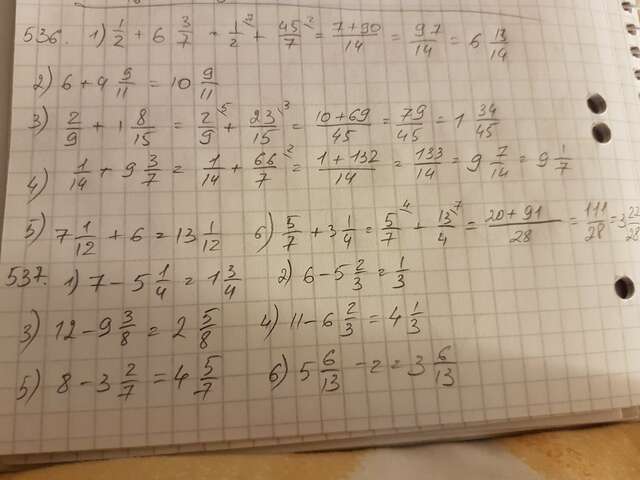 536. 1) 1/2 + 6 3/7 = 1/2 ⁷ + 45/7 ² = 7+90/14 = 97/14 = 6 13/14
2) 6 + 4 9/11 = 10 9/11
3) 2/9 + 1 8/15 = 2/9 ⁵ + 23/15 ³ = 10+69/45 = 79/45 = 1 34/45
4) 1/14 + 9 3/7 = 1/14 + 66/7 ² = 1+132/14 = 133/14 = 9 7/14 = 9 1/7
5) 7 1/12 + 6 = 13 1/12 6) 5/7 + 3 1/4 = 5/7 ⁴ + 13/4 ⁷ = 20+91/28 = 111/28 = 3 22/28
537. 1) 7 - 5 1/4 = 1 3/4 2) 6 - 5 2/3 = 1/3
3) 12 - 9 3/8 = 2 5/8 4) 11 - 6 2/3 = 4 1/3
5) 8 - 3 2/7 = 4 5/7 6) 5 6/13 - 2 = 3 6/13